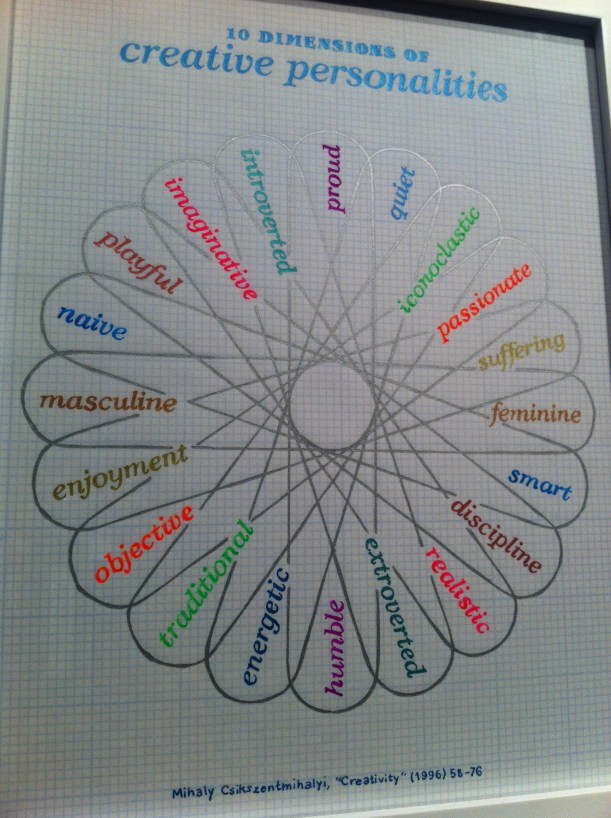 10 DIMENSIONS OF
creative personalities
proud
quiet
iconoclastic
passionate
suffering
feminine
smart
discipline
realistic
extroverted
humble
energetic
traditional
objective
enjoyment
masculine
naive
playful
imaginative
introverted
Mihaly Csikszentmihalyi, "Creativity" (1996) 58-76